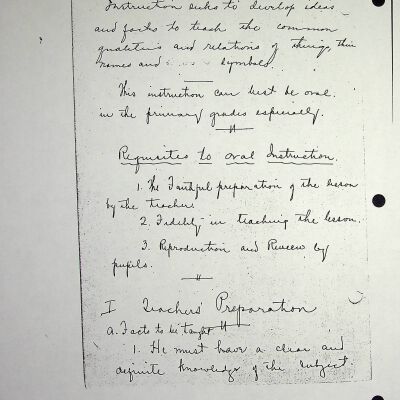 Instruction seeks to develop ideas
and facts to teach the common
qualities and relations of things, their
names and symbols.
This instruction can best be oral
in the primary grades especially.
Requisites to oral Instruction.
1. The Faithful preparation of the lesson
by the teacher
2. Fidelity in teaching the lesson.
3. Reproduction and Review by
pupils.
I Teachers' Preparation
a. Facts to be taught
1. He must have a clear and
definite knowledge of the subject